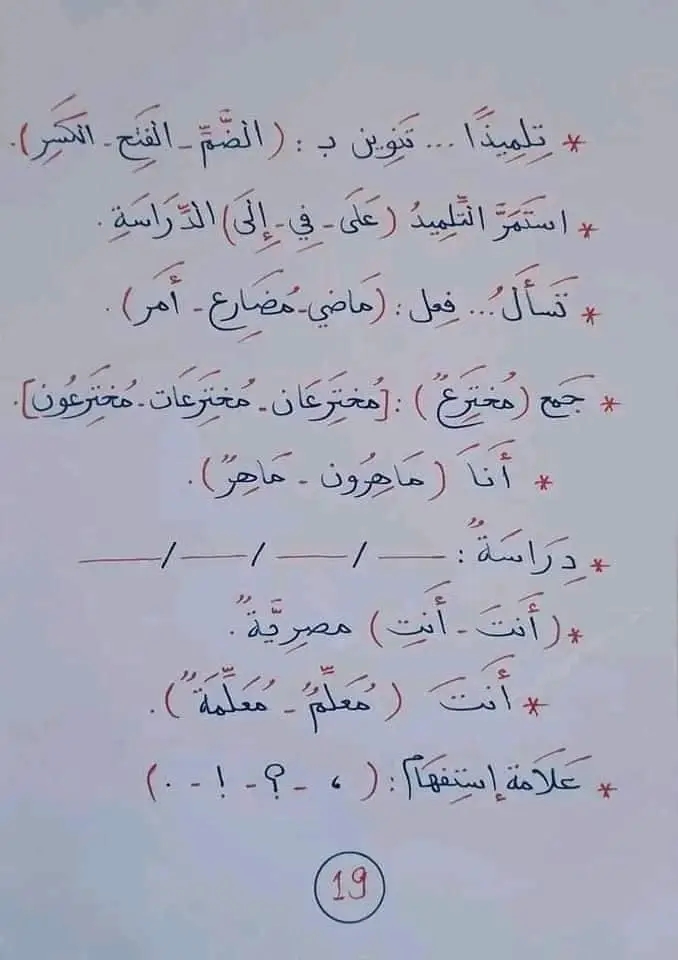 * تِلمِيذًا ... تَنوِين بـ : (الضَّمِّ - الفَتحِ - الكَسرِ).
* استَمَرَّ التِّلمِيذُ (عَلَى - فِي - إِلَى) الدِّرَاسَةِ .
* تَسأَلُ ... فِعل : (مَاضِي - مُضَارِع - أَمر) .
* جَمع (مُختَرِعٌ) : [مُختَرِعَان - مُختَرِعَات - مُختَرِعُون] .
* أَنَا (مَاهِرُون - مَاهِرٌ) .
* دِرَاسَةٌ : ـــــ / ـــــ / ـــــ / ـــــ
* (أَنتَ - أَنتِ) مصرِيَّةٌ .
* أَنتَ (مُعَلِّمٌ - مُعَلِّمَةٌ) .
* عَلَامَة إستِفهَام : ( ، - ؟ - ! - . )
19